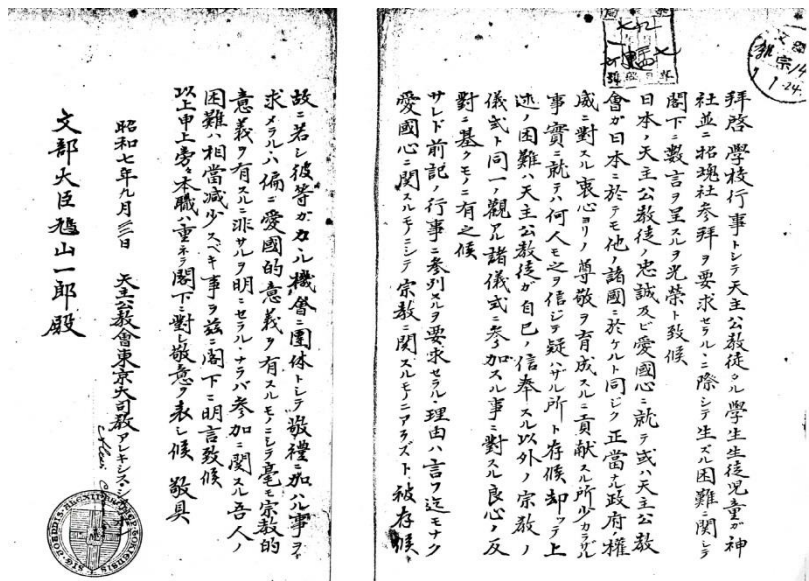 拝啓 學校行事トシテ天主公教徒タル學生生徒児童ガ神
社並ニ招魂社参拜ヲ要求セラルヽニ際シテ生ズル困難ニ関シテ
閣下ニ数言ヲ呈スルヲ光榮ト致候
日本ノ天主公教徒ノ忠誠及ビ愛國心ニ就テ或ハ天主公教
會ガ日本ニ於テモ他ノ諸國ニ於ケルト同ジク正當ナル政府ノ權
威ニ對スル衷心ヨリノ尊敬ヲ育成スルニ貢献スル所少カラザル
事實ニ就テハ何人モ之ヲ信ジテ疑ハザル所ト存候却ツテ上
述ノ困難ハ天主公教徒ガ自己ノ信奉スル以外ノ宗教ノ
儀式ト同一ノ觀アル諸儀式ニ参加スル事ニ對スル良心ノ反
對ニ基クモノニ有之候
サレド前記ノ行事ニ参列スルヲ要求セラルヽ理由ハ言フ迄モナク
愛國心ニ関スルモノニシテ宗教ニ関スルモノニアラズト被存候
故ニ若シ彼等ガカヽル機會ニ團体トシテ敬禮ニ加ハル事ヲ
求メラルヽハ偏ニ愛國的意義ヲ有スルモノニシテ毫モ宗教的
意義ヲ有スルニ非サルヲ明ニセラルヽナラバ参加ニ関スル吾人ノ
困難ハ相當減少スベキ事ヲ茲ニ閣下ニ明言致候
以上申上旁々本職ハ重ネテ閣下ニ對シ敬意ヲ表シ候 敬具
昭和七年九月 日 天主公教會東京大司教アレキシス・シャンボン
文部大臣鳩山一郎殿